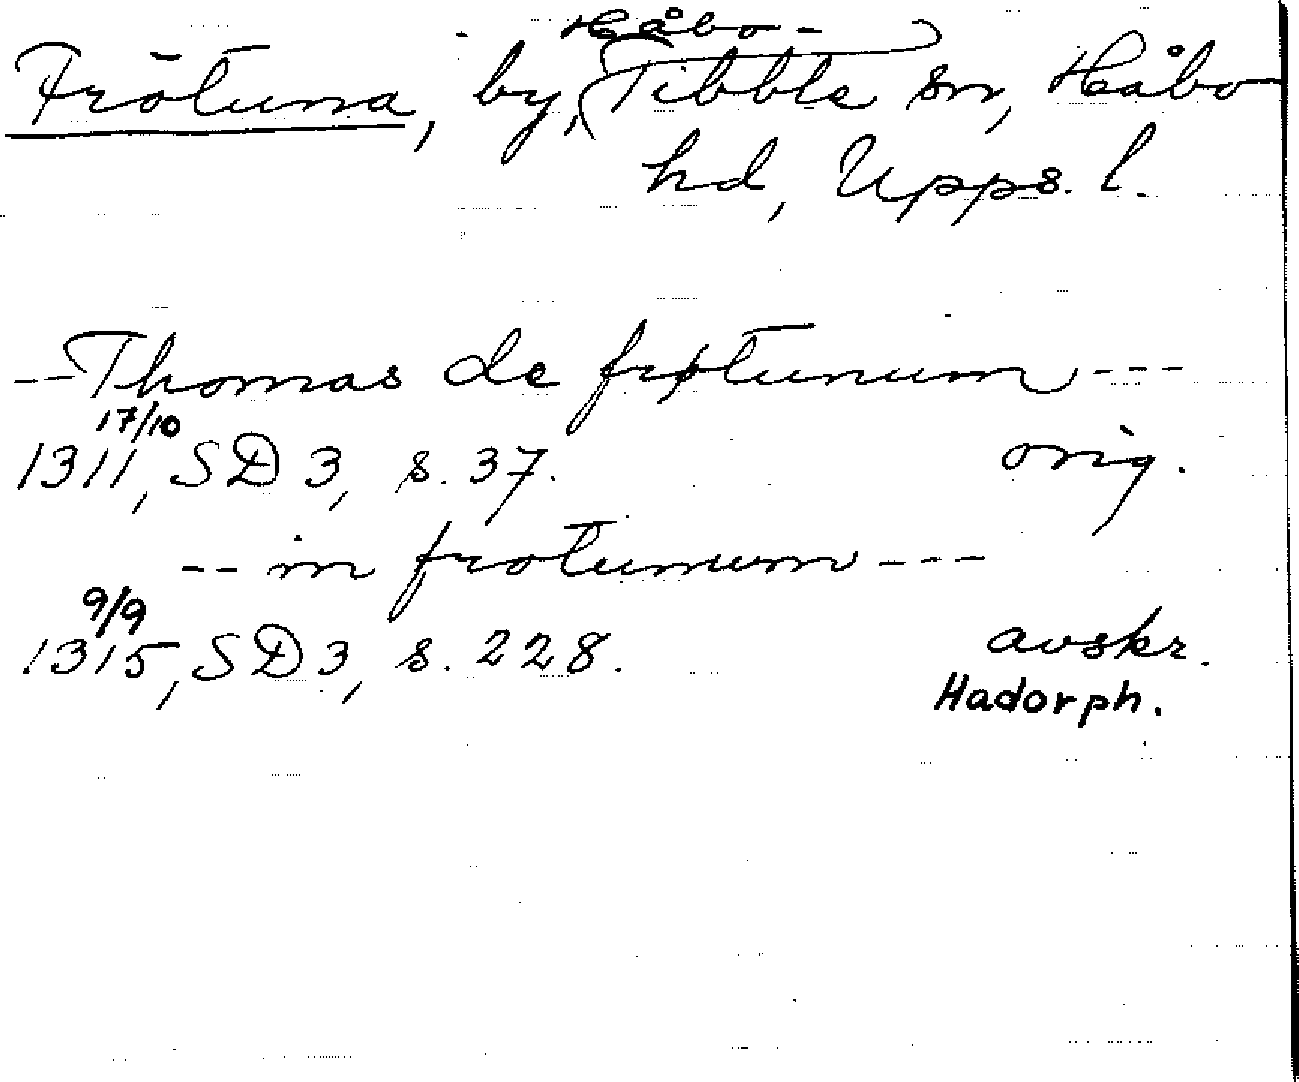 Frötuna, by, Håbo-Tibble sn, Håbo
hd, Upps. l.
--Thomas de frøtunum---
17/10
1311, SD 3, s. 37. orig.
-- in frotunum ---
9/9
1315, SD 3, s. 228. avskr.
Hadorph.